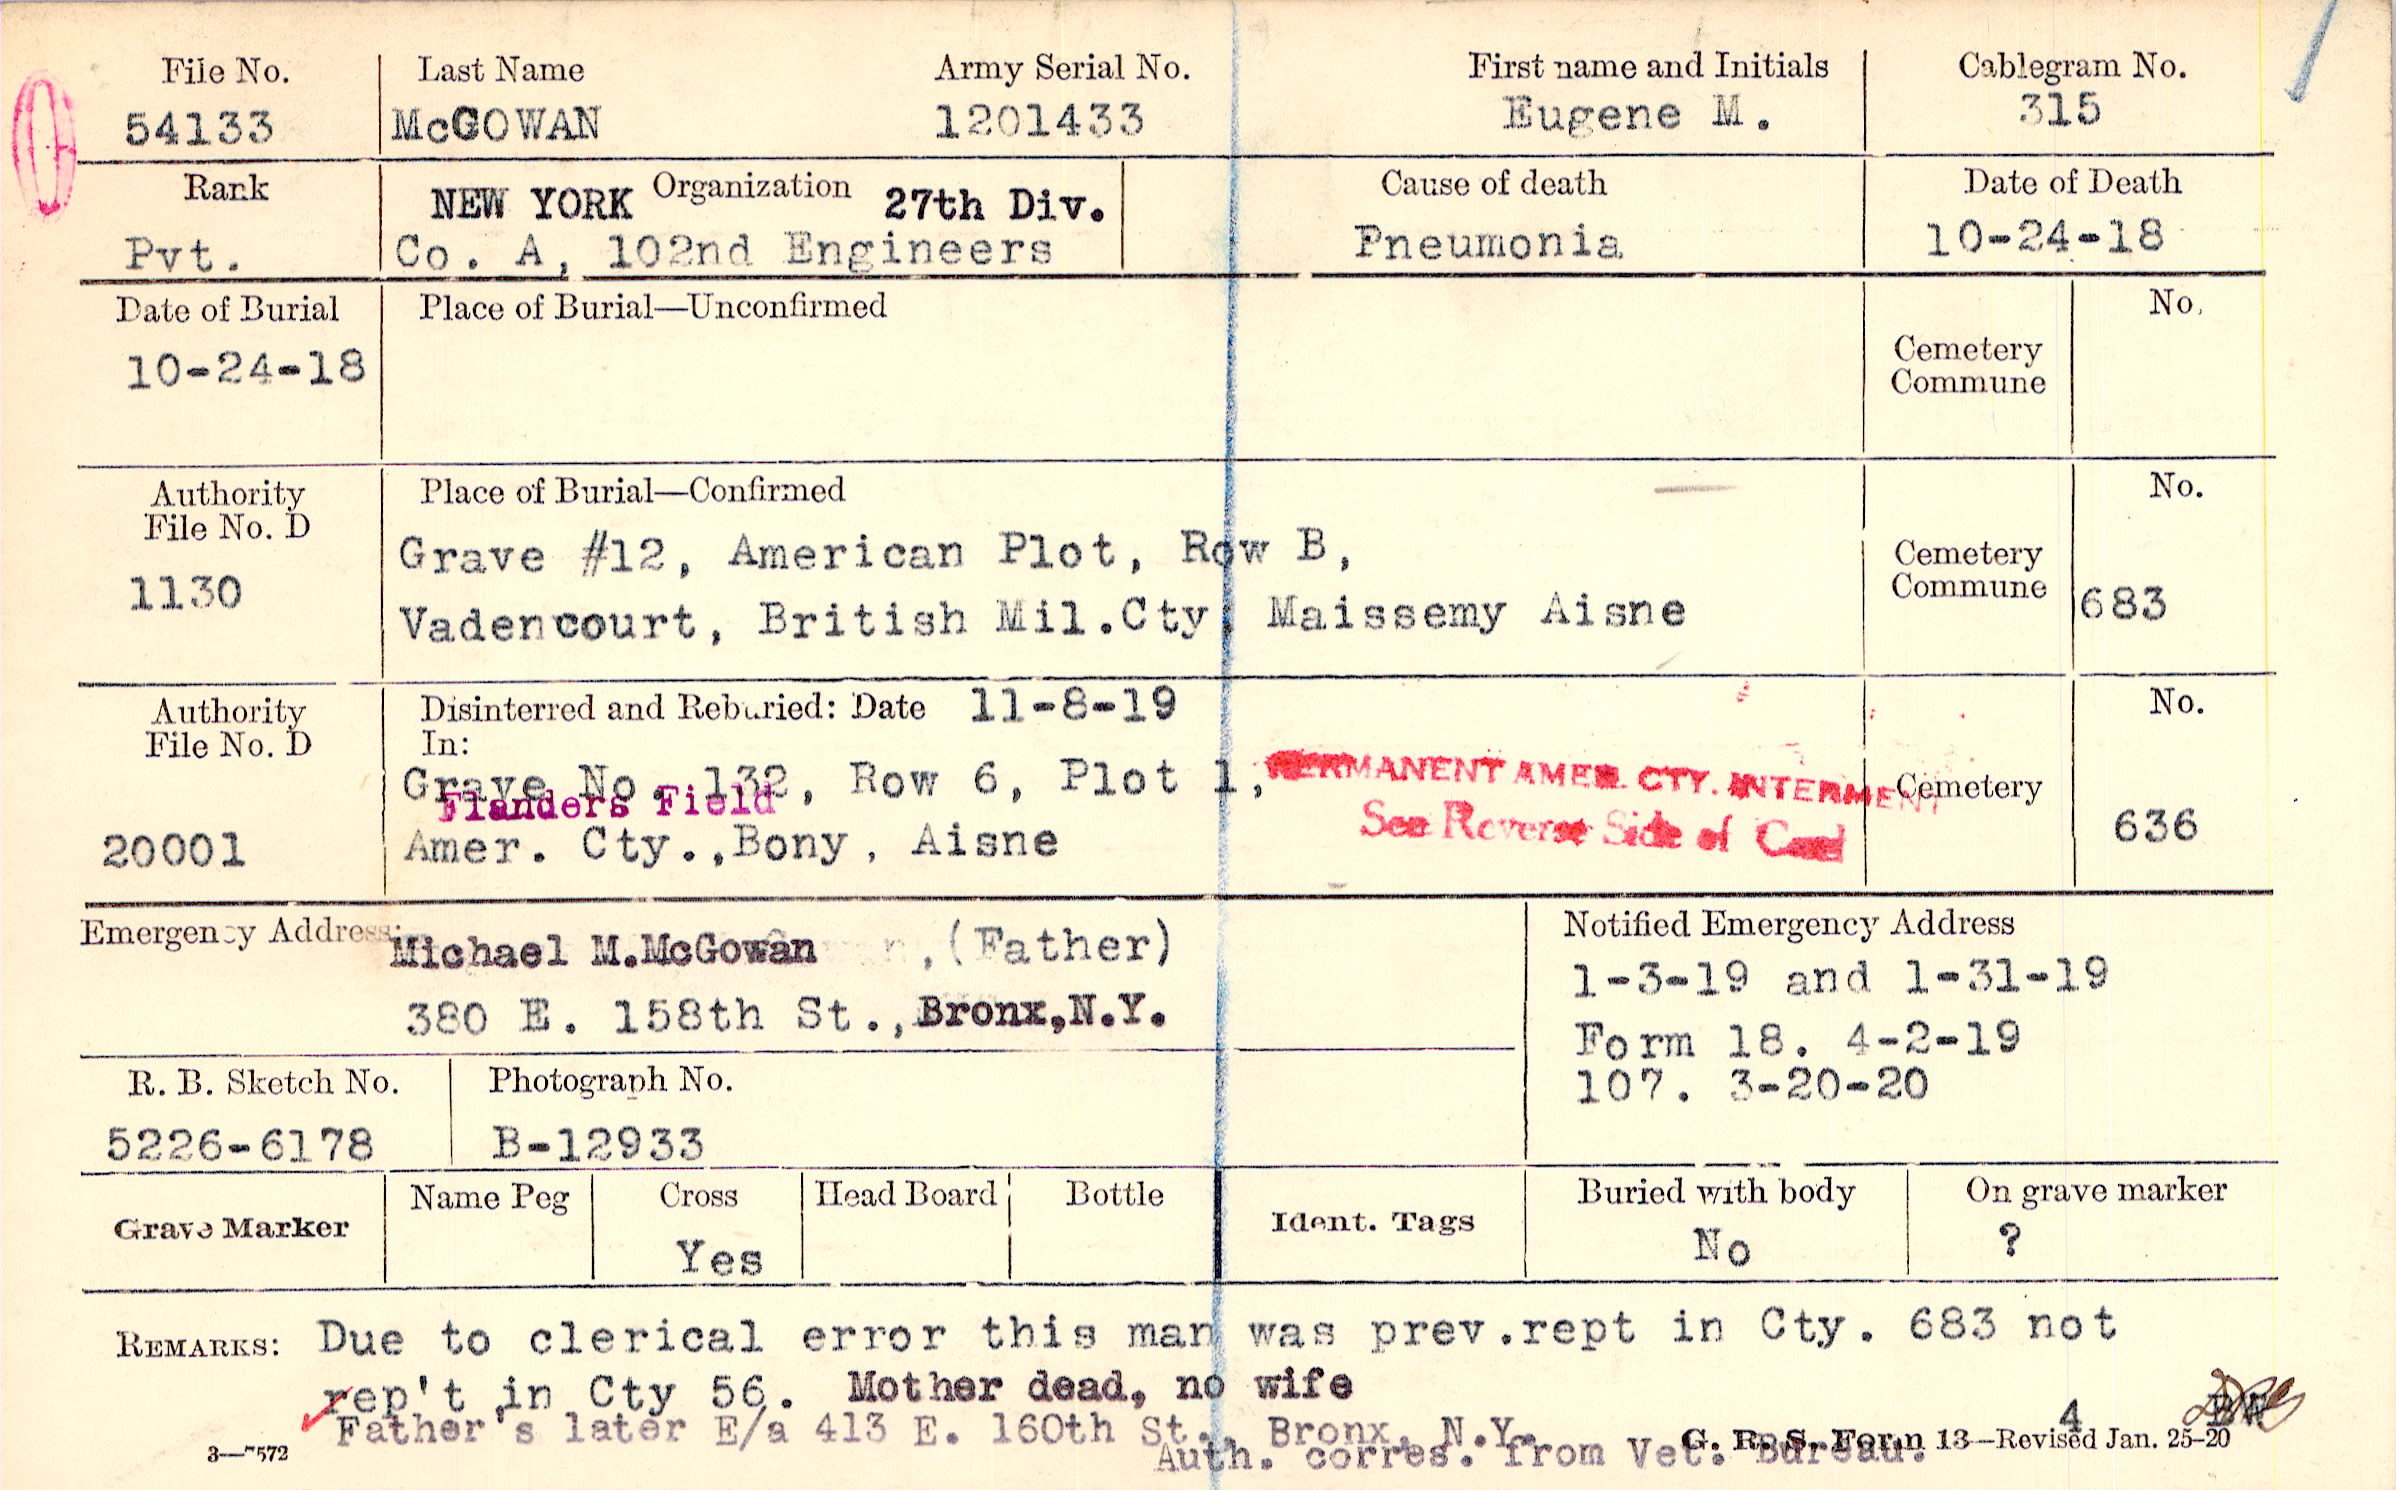 File No. Last Name Army Serial No. First name and Initials Cablegram No.
54133 McGOWAN 1201433 Eugene M. 315
Rank Organization Cause of death Date of Death
NEW YORK 27th Div.
Pvt. Co. A, 102nd Engineers Pneumonia 10-24-18
Date of Burial Place of Burial—Unconfirmed No.
10-24-18 Cemetery
Commune
Authority Place of Burial—Confirmed No.
File No. D
Grave #12, American Plot, Row B, Cemetery
1130 Commune 683
Vadencourt, British Mil.Cty, Maissemy Aisne
Authority Disinterred and Reburied: Date 11-8-19 No.
File No. D In:
Grave No. 132, Row 6, Plot 1, PERMANENT AMER. CTY. INTERMENT Cemetery
Flanders Field See Reverse Side of Card 636
20001 Amer. Cty.,Bony, Aisne
Emergency Address: Michael M.McGowan ,(Father) Notified Emergency Address
1-3-19 and 1-31-19
380 E. 158th St.,Bronx,N.Y.
Form 18. 4-2-19
R. B. Sketch No. Photograph No. 107. 3-20-20
5226-6178 B-12933
Grave Marker Name Peg Cross Head Board Bottle Ident. Tags Buried with body On grave marker
Yes No ?
REMARKS: Due to clerical error this man was prev.rept in Cty. 683 not
rep't in Cty 56. Mother dead, no wife
Father's later E/a 413 E. 160th St., Bronx, N.Y.
4
3—7572 G. R. S. Form 13—Revised Jan. 25-20
Auth. corres. from Vet. Bureau.